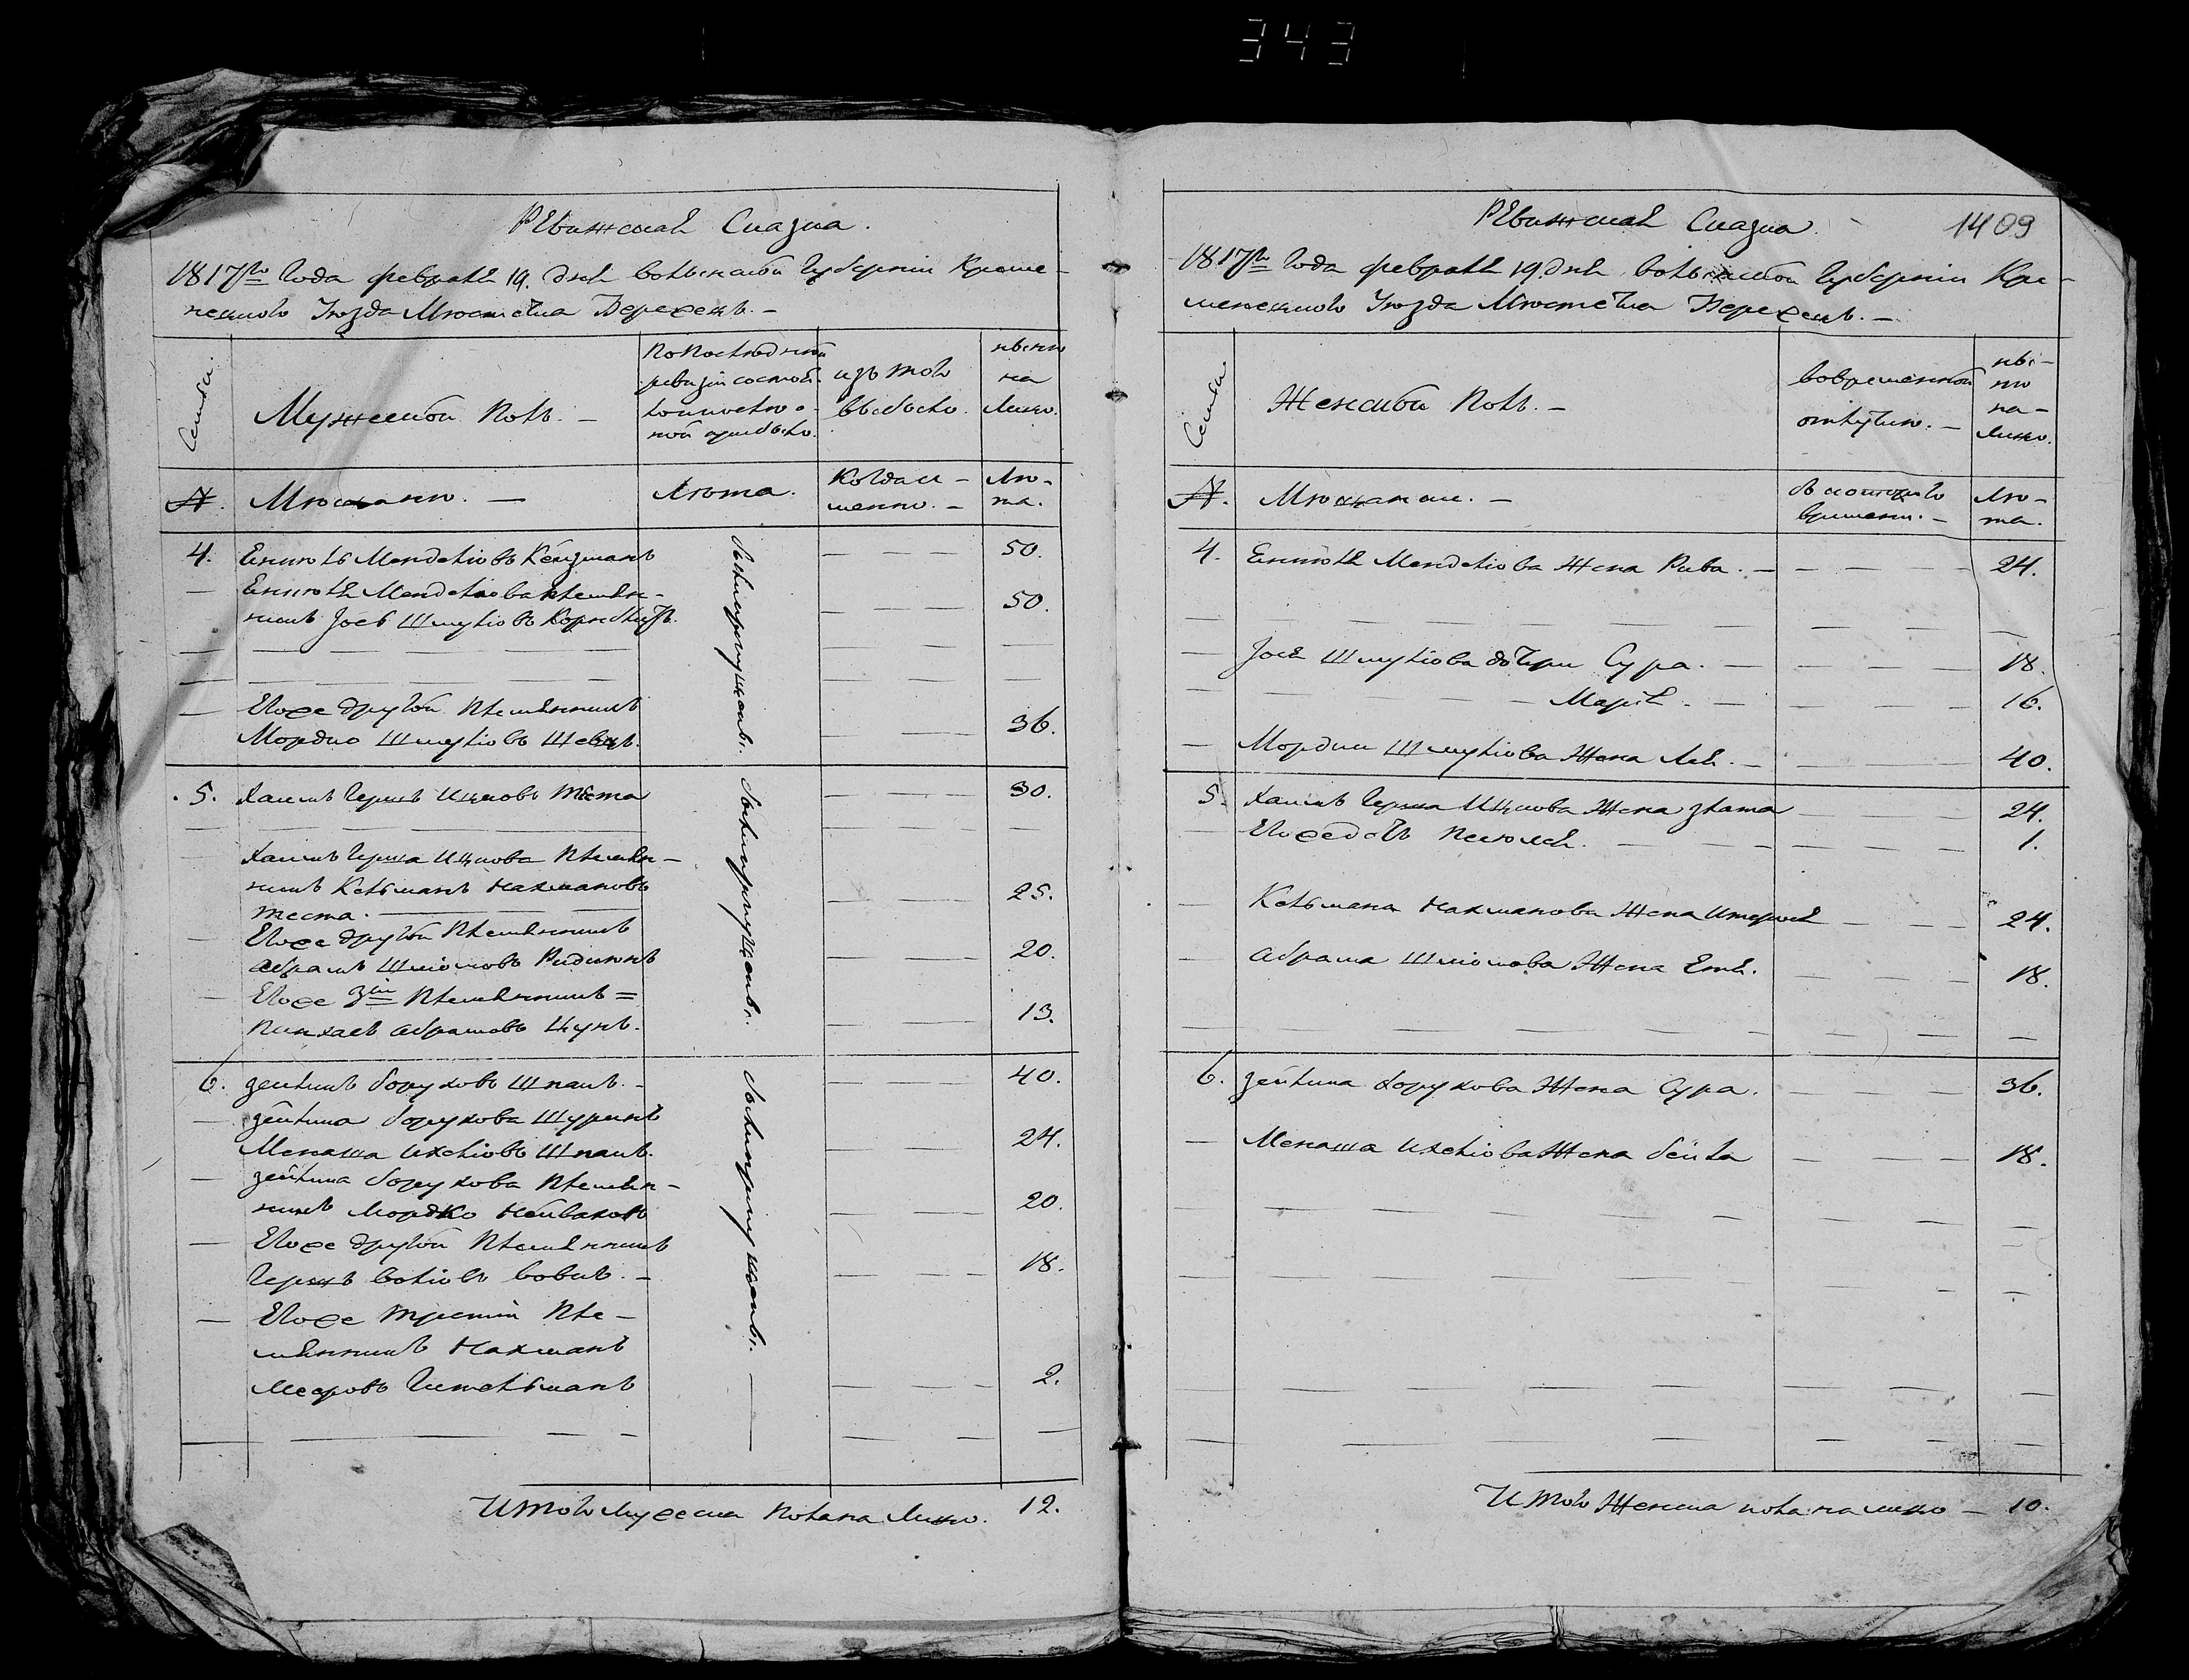 343
Ревижская Сказка.
1817го Года февраля 19. дня волынской Губернии Кроме-
нецкого Уезда Местечка Бережецъ. —
Семьи.
Мужеской Полъ. —
По последней
ревизии состоя-
ло и после о-
ной прибыло.
изъ того
выбыло.
ныне
на
Лицо.
№.
Мещане. —
Лета.
Когда и-
менно. —
Ле-
та.
4. Еникель Менделiовъ Кейзманъ — — — 50.
— Еникеля Менделiова племян-
никъ Иось Шмулiовъ — — — 50.
— Егоже другой племянникъ
Мордко Шмулiовъ Шевецъ. — — — 36.
5. Хаимъ Гершъ Ицковъ Теста — — — 30.
— Хаимъ Герша Ицкова племян-
никъ Кельманъ Нахмановъ — — — 25.
Теста.
— Егоже другой племянникъ
Абрамъ Шлiомовъ — — — 20.
— Егоже 3ій племянникъ =
Пинхасъ Абрамовъ Цукъ. — — — 13.
6. Зейликъ Боруховъ Шпакъ. — — — — 40.
— Зейлика Борухова Шуринъ
Менаша Ихелiовъ Шпакъ. — — — 24.
— Зейлика Борухова племян-
никъ Мордко — — — 20.
— Егоже другой племянникъ
Гершъ Волiовъ Вовкъ. — — — — 18.
— Егоже третій пле-
мянникъ Нахманъ
Мееровъ Гительманъ — — — 2.
Итого мужеска пола на Лицо. 12.
Ревижская Сказка.
1409
1817го Года февраля 19. дня волынской Губернии Кре-
менецкого Уезда Местечка Бережецъ. —
Семьи.
Женской Полъ. —
во временной
отлучке. —
ны-
не
на-
лицо.
№.
Мещанки. —
съ которого
времени. —
Ле-
та.
4. Еникеля Менделiова Жена Рива. — — — — 24.
— Иося Шмулiова дочери Сура. — — — — 18.
— — — Марiя. — — — — 16.
— Мордки Шмулiова Жена Лея. — — — — 40.
5. Хаимъ Герша Ицкова Жена Злата — — — 24.
Егоже дочь — — — 1.
— Кельмана Нахманова Жена — — — 24.
— Абрама Шлiомова Жена Етя. — — — 18.
6. Зейлика Борухова Жена Сура. — — — 36.
— Менаша Ихелiова Жена Бейла — — — 18.
Итого Женска пола на лицо — 10.